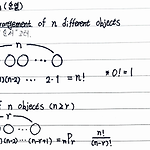 (순열)
arrangement of n different objects
n
)(n-2) ... 2·1 = n!
* 0! = 1
of n objects (n≥r)
r
)(n-2) ... (n-r+1) = nPr
n!
(n-r)!